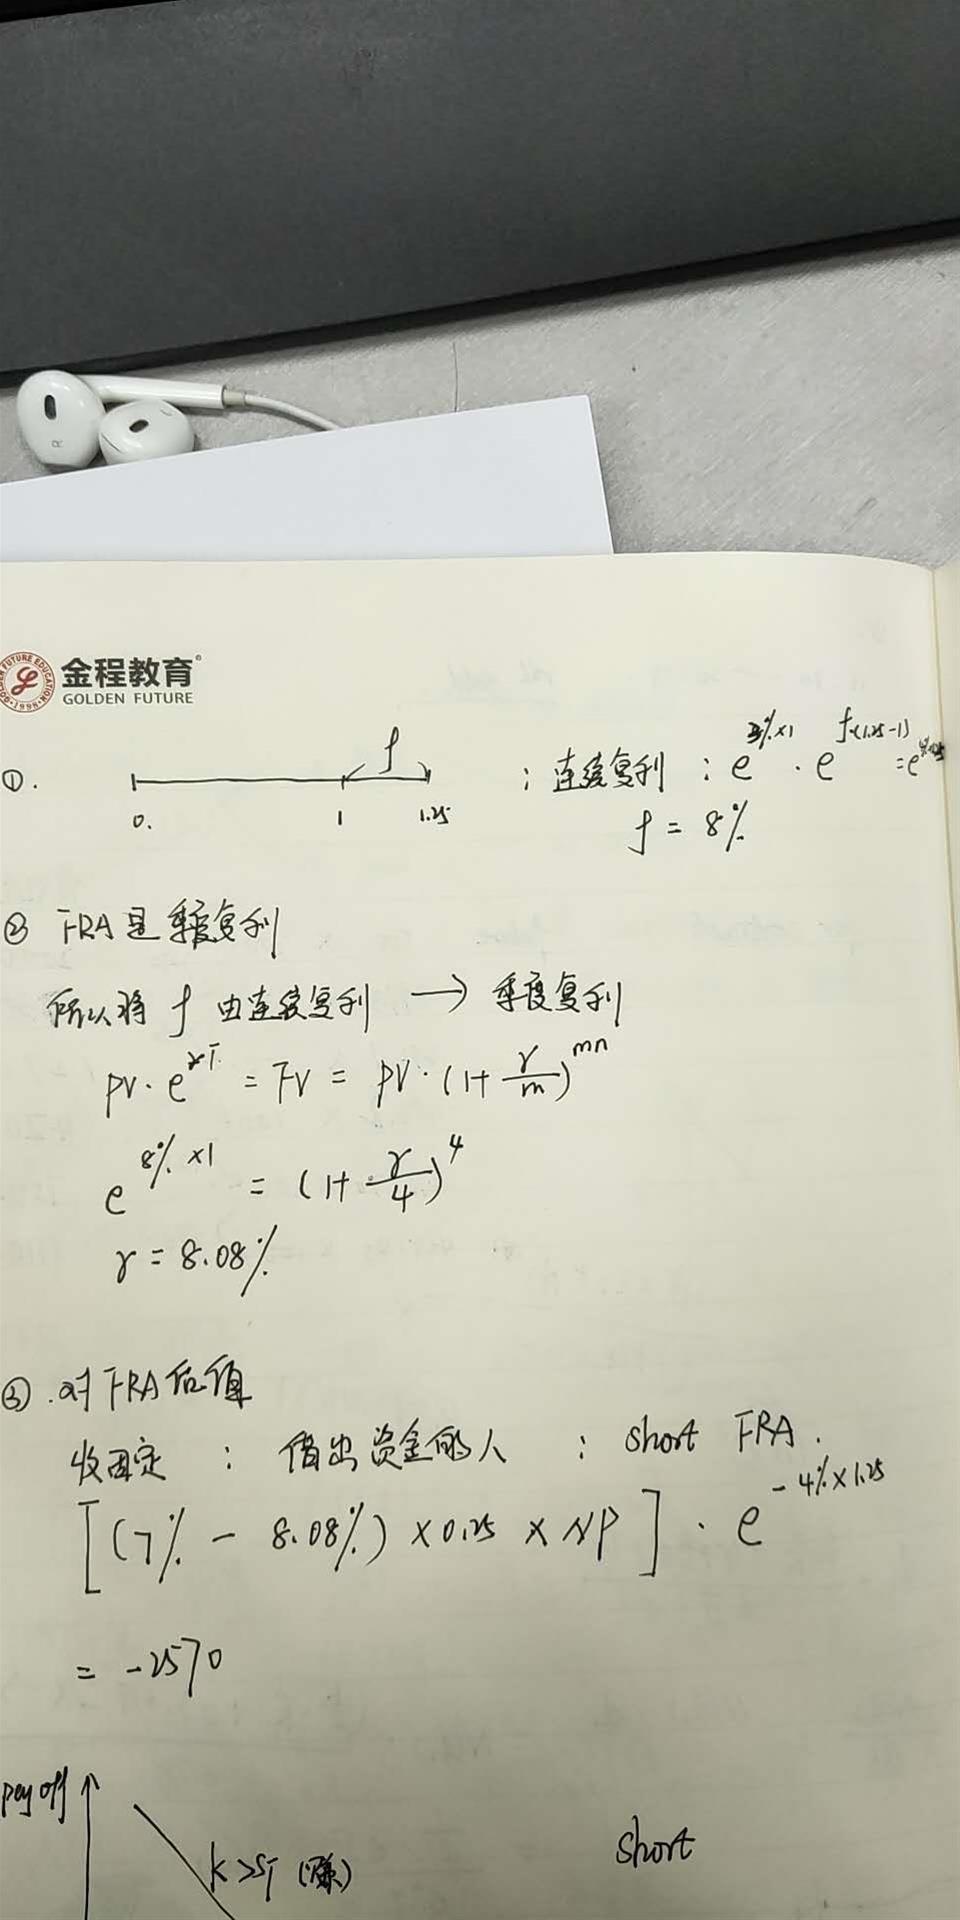 金程教育
GOLDEN FUTURE
①. 0. 1 1.25 f ; 连续复利 : e^{3%×1} · e^{f×(1.25-1)} = e^{4%×1.25}
f = 8%
② FRA是季度复利
所以将 f 由连续复利 → 季度复利
PV · e^{rT} = FV = PV · (1+ r/m)^{mn}
e^{8%×1} = (1+ r/4)^4
r = 8.08%
③. 对FRA估值
收固定 : 借出资金的人 : short FRA.
[(7% - 8.08%) × 0.25 × NP] · e^{-4%×1.25}
= -2570
pay off
K > S_T (赚) short